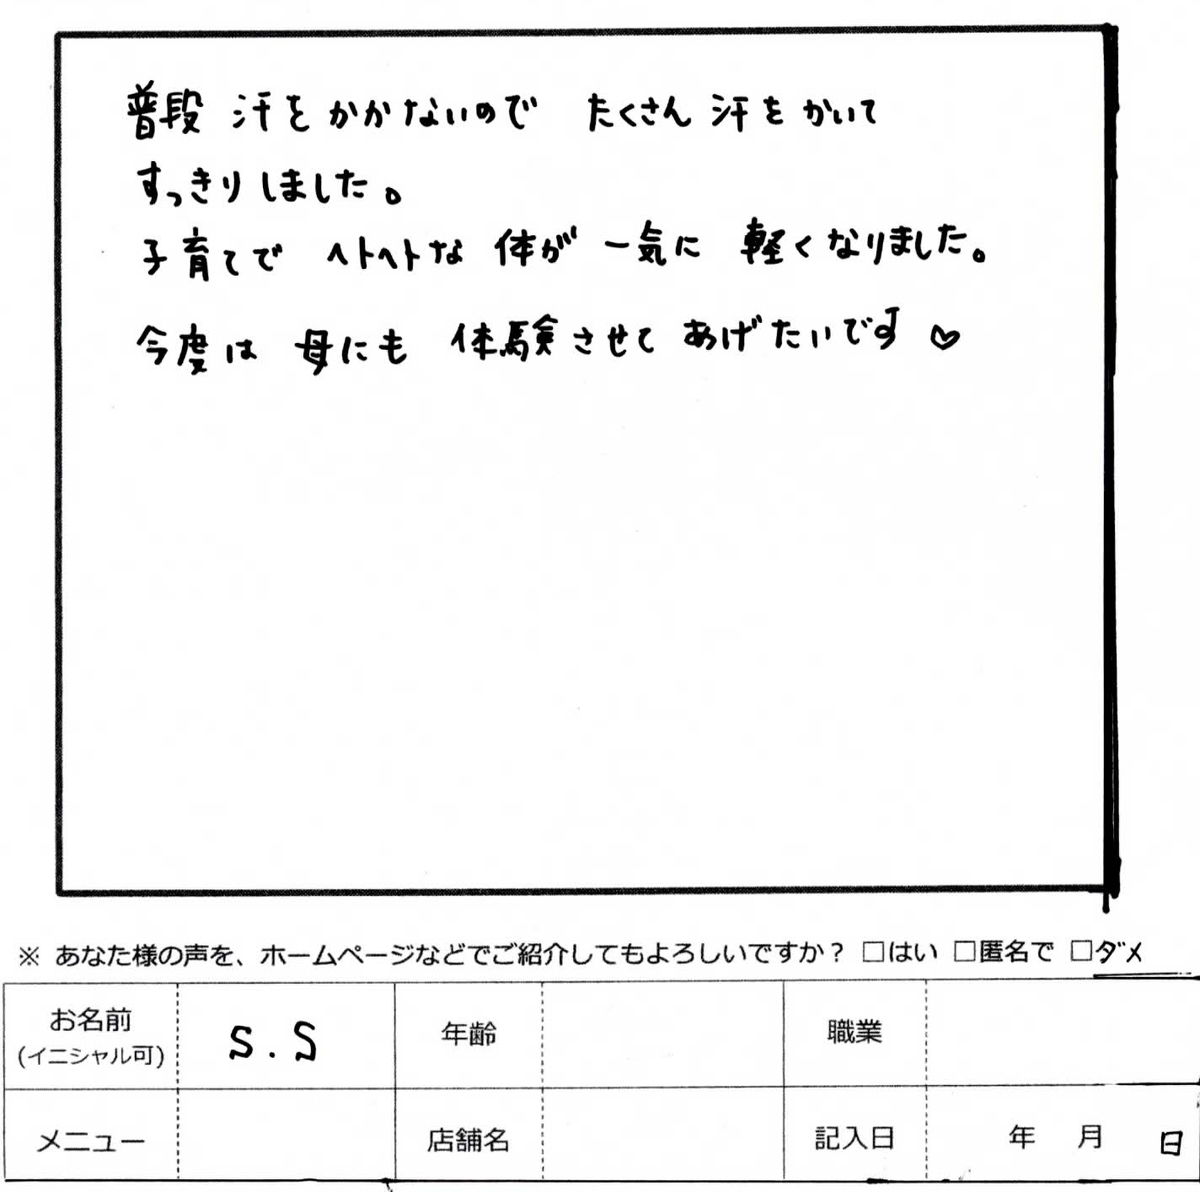 普段 汗をかかないので たくさん 汗をかいて
すっきりしました。
子育てで ヘトヘトな 体が 一気に 軽くなりました。
今度は 母にも 体験させて あげたいです♡
※ あなた様の声を、ホームページなどでご紹介してもよろしいですか？ □はい □匿名で □ダメ
お名前 S.S 年齢 職業
(イニシャル可)
メニュー 店舗名 記入日 年 月 日